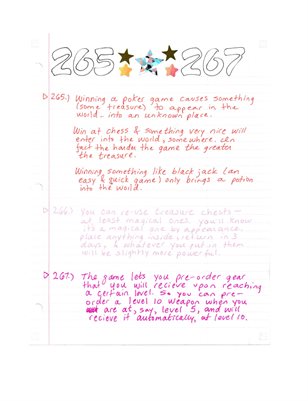 265 267
265.) Winning a poker game causes something
(some treasure) to appear in the
world - into an unknown place.
Win at chess & something very nice will
enter into the world, somewhere. In
fact the harder the game the greater
the treasure.
Winning something like black jack (an
easy & quick game) only brings a potion
into the world.
266.) You can re-use treasure chests -
at least magical ones. You'll know
its a magical one by appearance.
place anything inside, return in 3
days, & whatever you put in them
will be slightly more powerful.
267.) The game lets you pre-order gear
that you will recieve upon reaching
a certain level. So you can pre-
order a level 10 weapon when you
are at, say, level 5, and will
recieve it automatically, at level 10.